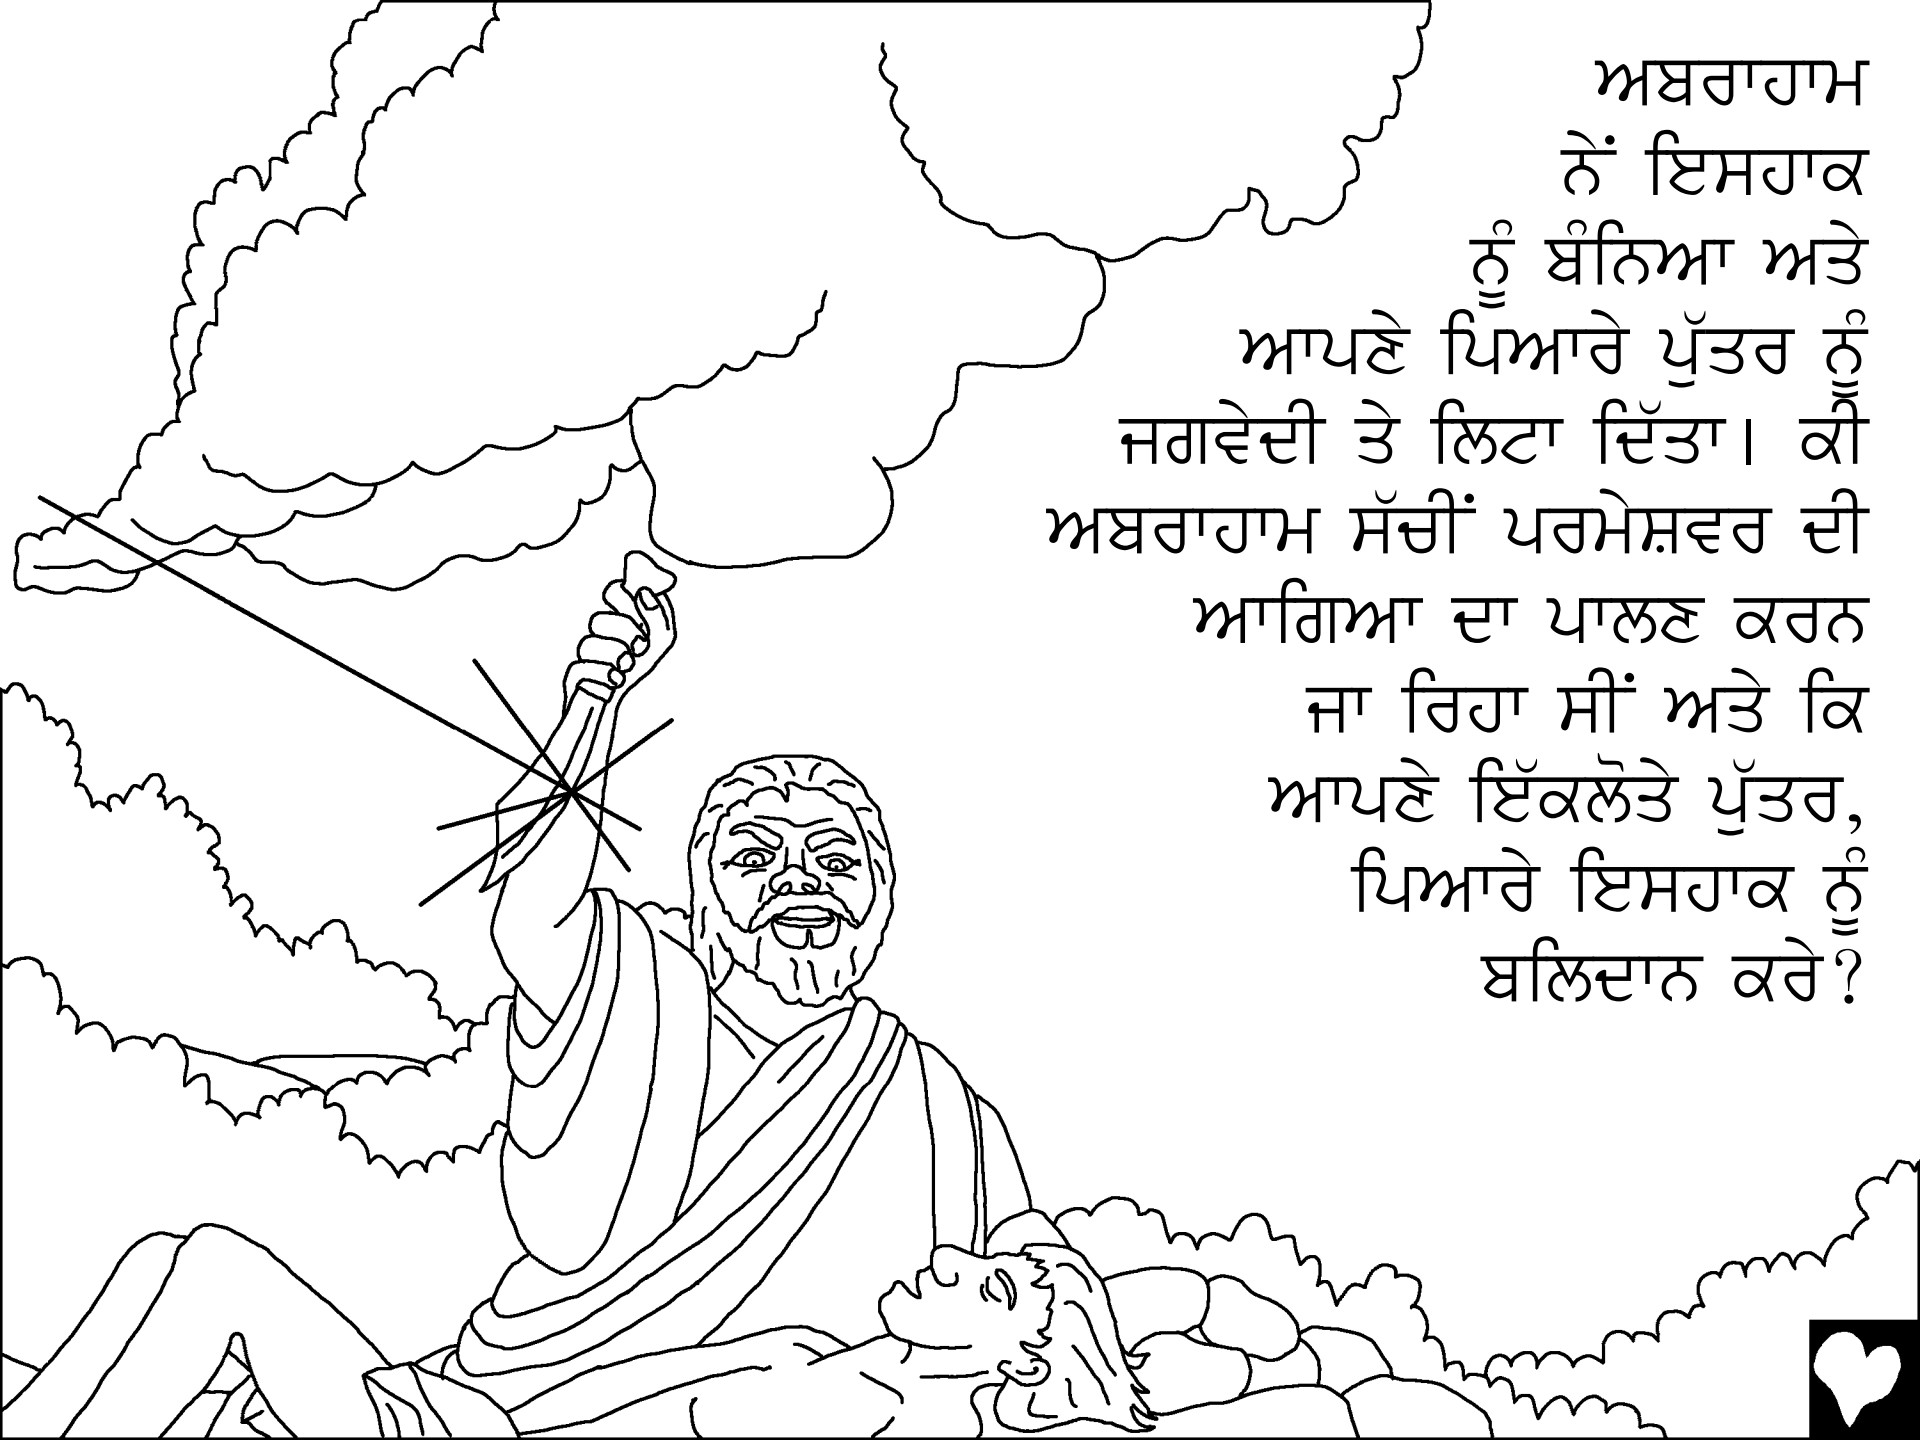 ਅਬਰਾਹਾਮ
ਨੇਂ ਇਸਹਾਕ
ਨੂੰ ਬੰਨਿਆ ਅਤੇ
ਆਪਣੇ ਪਿਆਰੇ ਪੁੱਤਰ ਨੂੰ
ਜਗਵੇਦੀ ਤੇ ਲਿਟਾ ਦਿੱਤਾ। ਕੀ
ਅਬਰਾਹਾਮ ਸੱਚੀਂ ਪਰਮੇਸ਼ਵਰ ਦੀ
ਆਗਿਆ ਦਾ ਪਾਲਣ ਕਰਨ
ਜਾ ਰਿਹਾ ਸੀਂ ਅਤੇ ਕਿ
ਆਪਣੇ ਇੱਕਲੋਤੇ ਪੁੱਤਰ,
ਪਿਆਰੇ ਇਸਹਾਕ ਨੂੰ
ਬਲਿਦਾਨ ਕਰੇ?